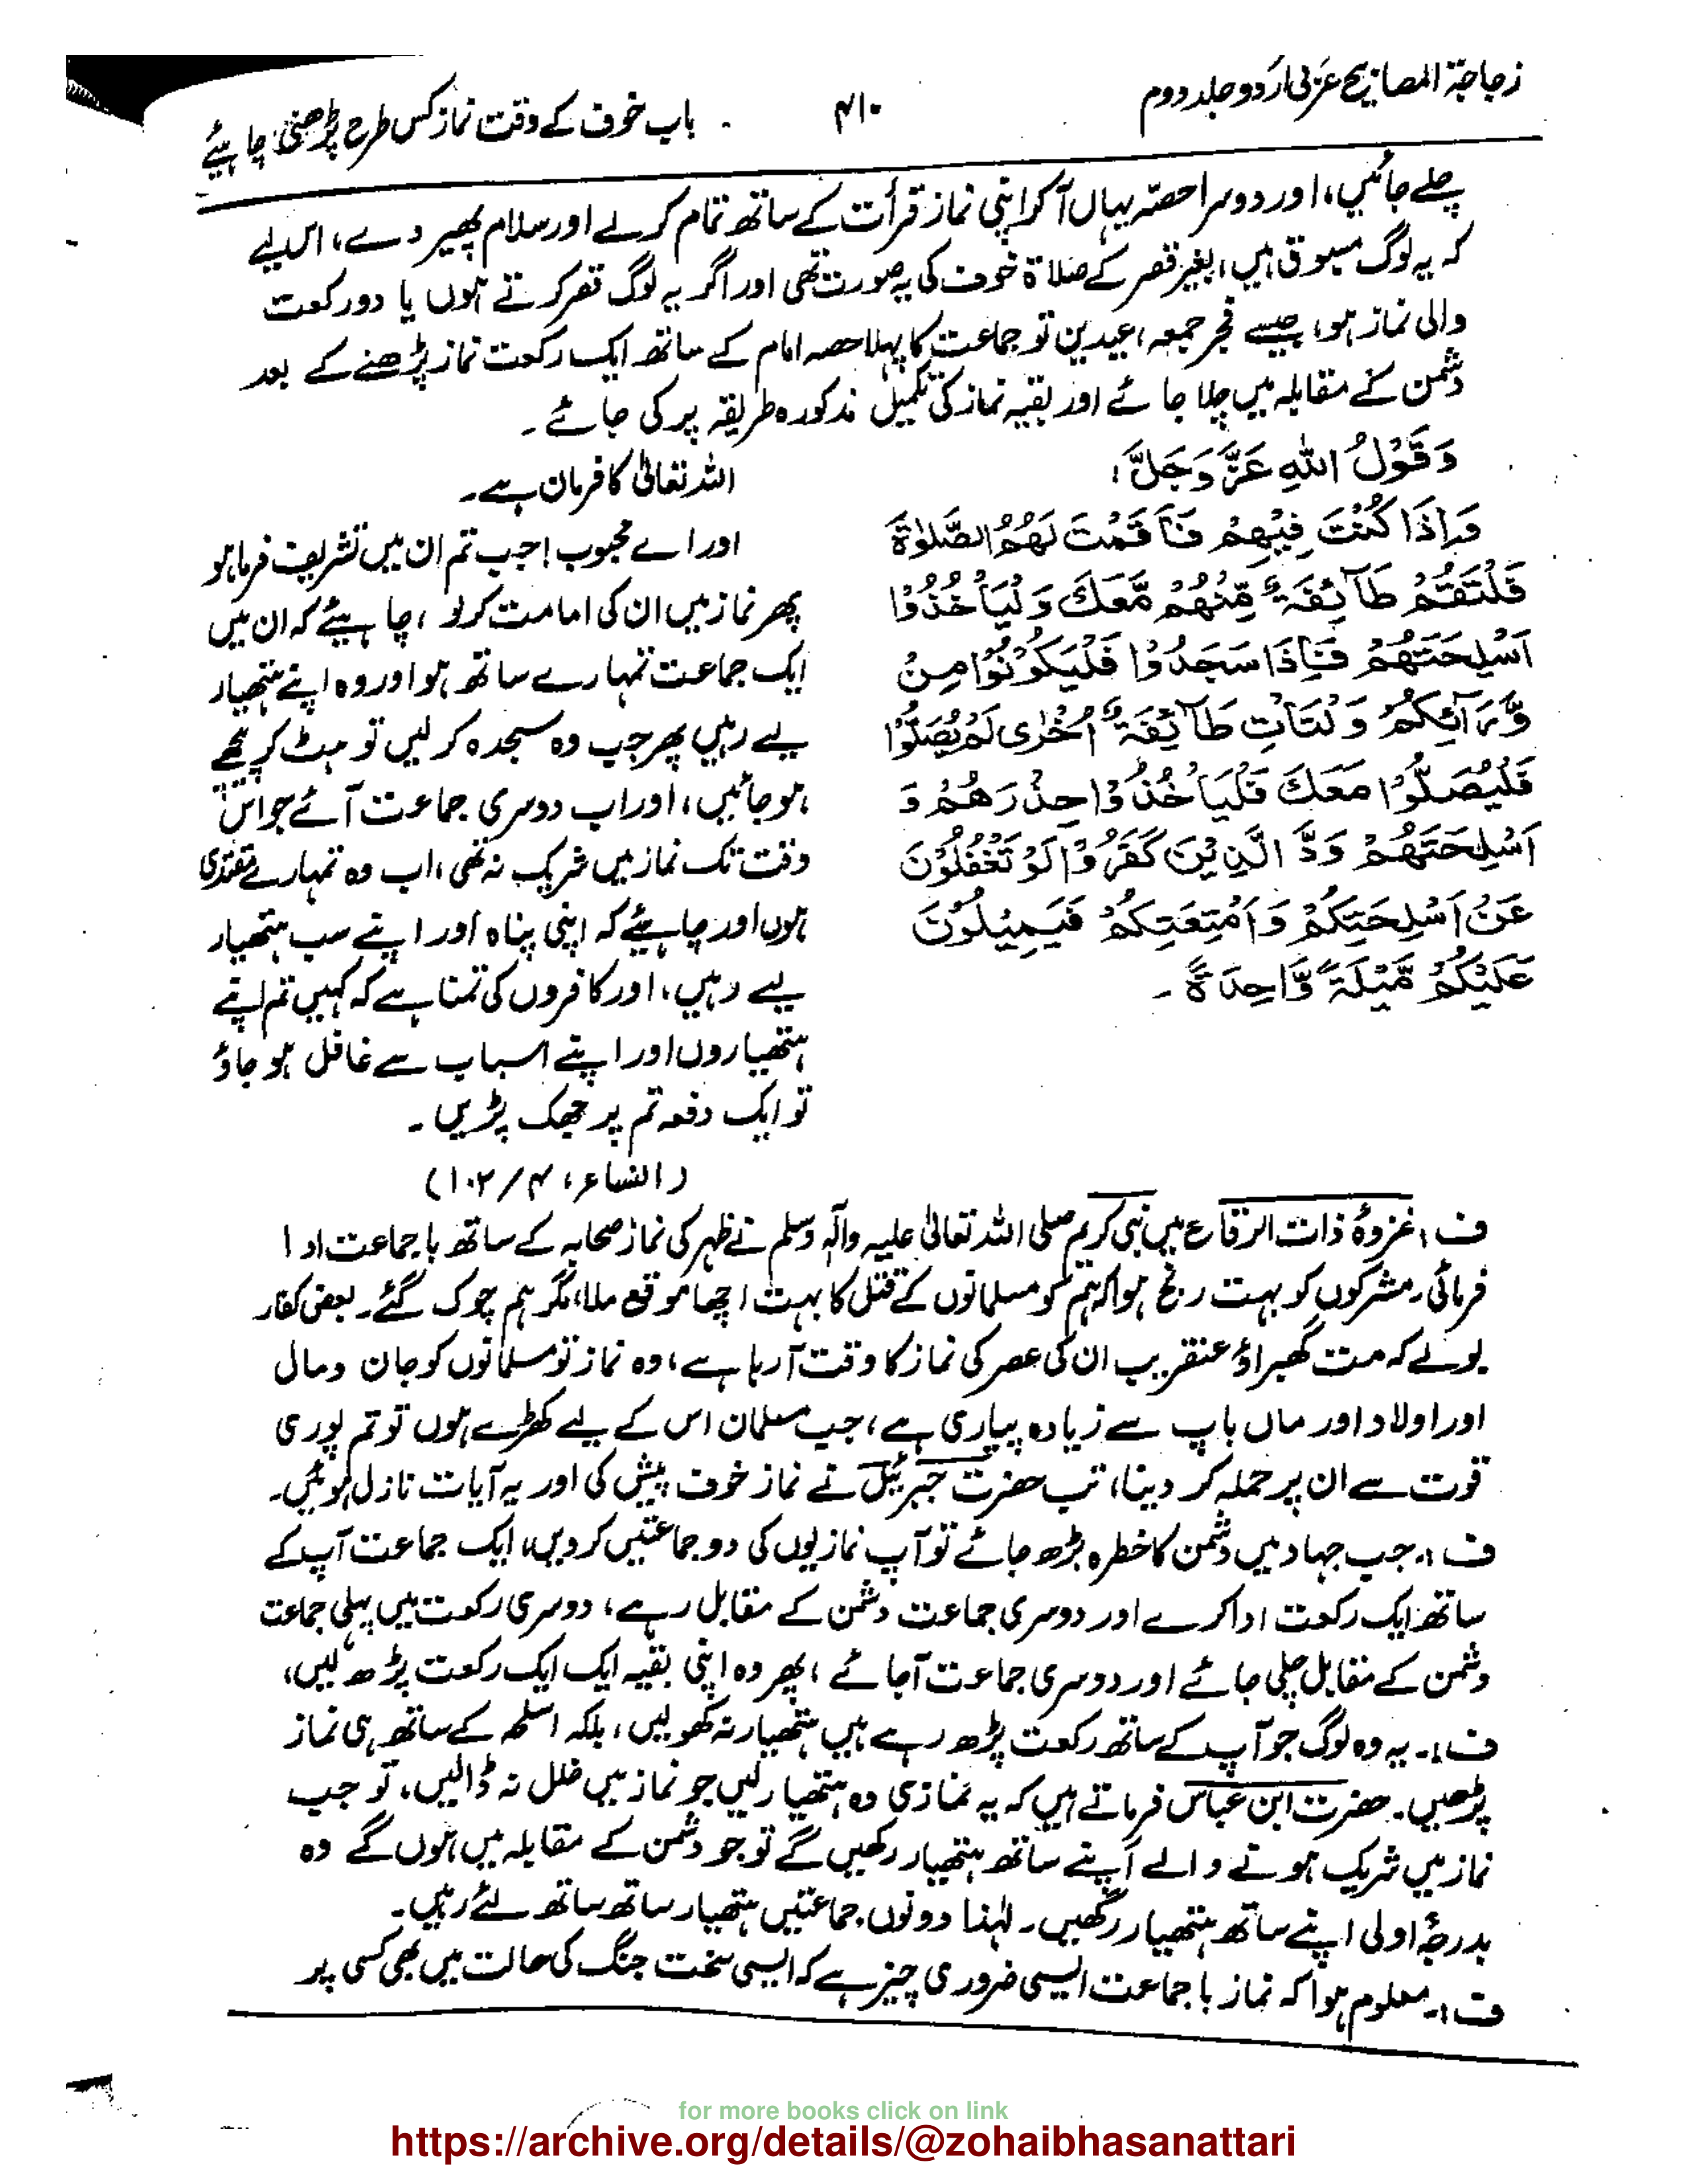 زجاجۃ المصابیح عربی اردو جلد دوم
۴۱۰
باب خوف کے وقت نماز کس طرح پڑھنی چاہیئے
چلے جائیں، اور دوسرا حصّہ یہاں آکر اپنی نماز قرأت کے ساتھ تمام کرلے اور سلام پھیر دے، اس لیے
کہ یہ لوگ مسبوق ہیں، بغیر قصر کے صلاۃ خوف کی یہ صورت تھی اور اگر یہ لوگ قصر کرتے ہوں یا دو رکعت
والی نماز ہو، جیسے فجر جمعہ، عیدین تو جماعت کا پہلا حصہ امام کے ساتھ ایک رکعت نماز پڑھنے کے بعد
دشمن کے مقابلہ میں چلا جائے اور بقیہ نماز کی تکمیل مذکورہ طریقہ پر کی جائے۔
وَقَوْلُ اللّٰهِ عَزَّ وَجَلَّ؛
وَاِذَا كُنْتَ فِيْهِمْ فَاَقَمْتَ لَهُمُ الصَّلٰوةَ
فَلْتَقُمْ طَآئِفَةٌ مِّنْهُمْ مَّعَكَ وَلْيَأْخُذُوْا
اَسْلِحَتَهُمْ فَاِذَا سَجَدُوْا فَلْيَكُوْنُوْا مِنْ
وَّرَآئِكُمْ وَلْتَاْتِ طَآئِفَةٌ اُخْرٰى لَمْ يُصَلُّوْا
فَلْيُصَلُّوْا مَعَكَ فَلْيَاْخُذُوْا حِذْرَهُمْ وَ
اَسْلِحَتَهُمْ وَدَّ الَّذِيْنَ كَفَرُوْا لَوْ تَغْفُلُوْنَ
عَنْ اَسْلِحَتِكُمْ وَاَمْتِعَتِكُمْ فَيَمِيْلُوْنَ
عَلَيْكُمْ مَّيْلَةً وَّاحِدَةً ۔
اللہ تعالیٰ کا فرمان ہے۔
اور اے محبوب! جب تم ان میں تشریف فرما ہو
پھر نماز میں ان کی امامت کرلو، چاہیئے کہ ان میں
ایک جماعت تمہارے ساتھ ہو اور وہ اپنے ہتھیار
لیے رہیں پھر جب وہ سجدہ کرلیں تو ہٹ کر پیچھے
ہوجائیں، اور اب دوسری جماعت آئے جو اس
وقت تک نماز میں شریک نہ تھی، اب وہ تمہارے مقتدی
ہوں اور چاہیئے کہ اپنی پناہ اور اپنے سب ہتھیار
لیے رہیں، اور کافروں کی تمنا ہے کہ کہیں تم اپنے
ہتھیاروں اور اپنے اسباب سے غافل ہو جاؤ
تو ایک دفعہ تم پر جھک پڑیں ۔
(النساء، ۴/۱۰۲)
ف؛ غزوۂ ذات الرقاع میں نبی کریم صلی اللہ تعالیٰ علیہ وآلہ وسلم نے ظہر کی نماز صحابہ کے ساتھ با جماعت ادا
فرمائی۔ مشرکوں کو بہت رنج ہوا کہ ہم کو مسلمانوں کے قتل کا بہت اچھا موقع ملا، مگر ہم چوک گئے۔ بعض کفار
بولے کہ مت گھبراؤ عنقریب ان کی عصر کی نماز کا وقت آ رہا ہے، وہ نماز تو مسلمانوں کو جان و مال
اور اولاد اور ماں باپ سے زیادہ پیاری ہے، جب مسلمان اس کے لیے کھڑے ہوں تو تم پوری
قوت سے ان پر حملہ کر دینا، تب حضرت جبرئیل نے نماز خوف پیش کی اور یہ آیات نازل ہوئیں۔
ف؛۔ جب جہاد میں دشمن کا خطرہ بڑھ جائے تو آپ نمازیوں کی دو جماعتیں کردیں، ایک جماعت آپ کے
ساتھ ایک رکعت ادا کرے اور دوسری جماعت دشمن کے مقابل رہے، دوسری رکعت میں پہلی جماعت
دشمن کے مقابل چلی جائے اور دوسری جماعت آجائے، پھر وہ اپنی بقیہ ایک ایک رکعت پڑھ لیں،
ف؛۔ یہ وہ لوگ جو آپ کے ساتھ رکعت پڑھ رہے ہیں ہتھیار نہ کھولیں، بلکہ اسلحہ کے ساتھ ہی نماز
پڑھیں۔ حضرت ابن عباس فرماتے ہیں کہ یہ نمازی وہ ہتھیار لیں جو نماز میں خلل نہ ڈالیں، تو جب
نماز میں شریک ہونے والے اپنے ساتھ ہتھیار رکھیں گے تو جو دشمن کے مقابلہ میں ہوں گے وہ
بدرجۂ اولی اپنے ساتھ ہتھیار رکھیں۔ لہٰذا دونوں جماعتیں ہتھیار ساتھ ساتھ لئے رہیں۔
ف؛۔ معلوم ہوا کہ نماز با جماعت ایسی ضروری چیز ہے کہ ایسی سخت جنگ کی حالت میں بھی کسی پر
for more books click on link
https://archive.org/details/@zohaibhasanattari